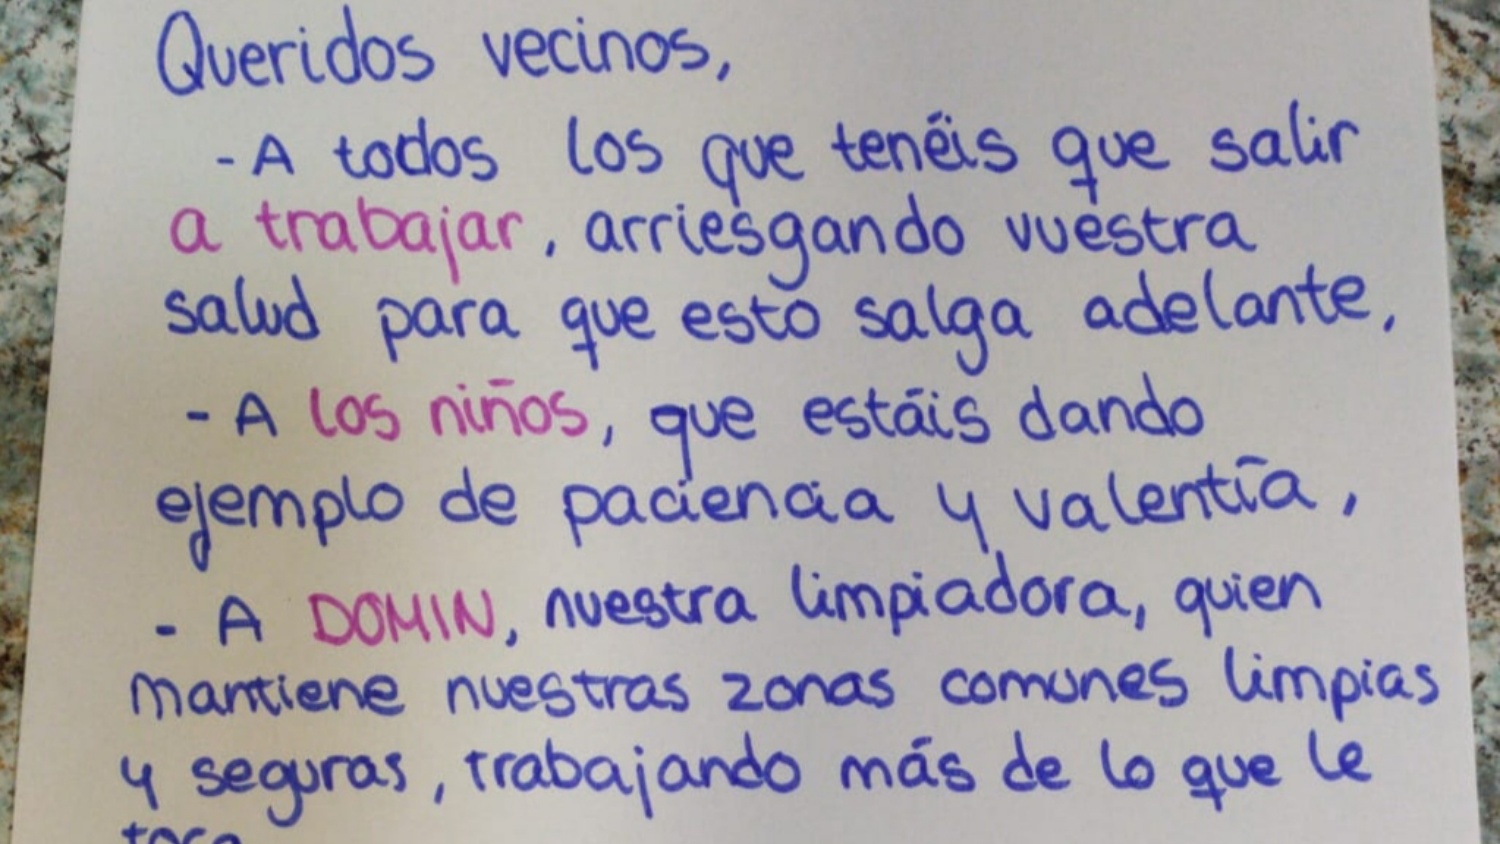 Queridos vecinos,
- A todos los que tenéis que salir
a trabajar, arriesgando vuestra
salud para que esto salga adelante,
- A los niños, que estáis dando
ejemplo de paciencia y valentía,
- A DOMIN, nuestra limpiadora, quien
mantiene nuestras zonas comunes limpias
y seguras, trabajando más de lo que le
toca